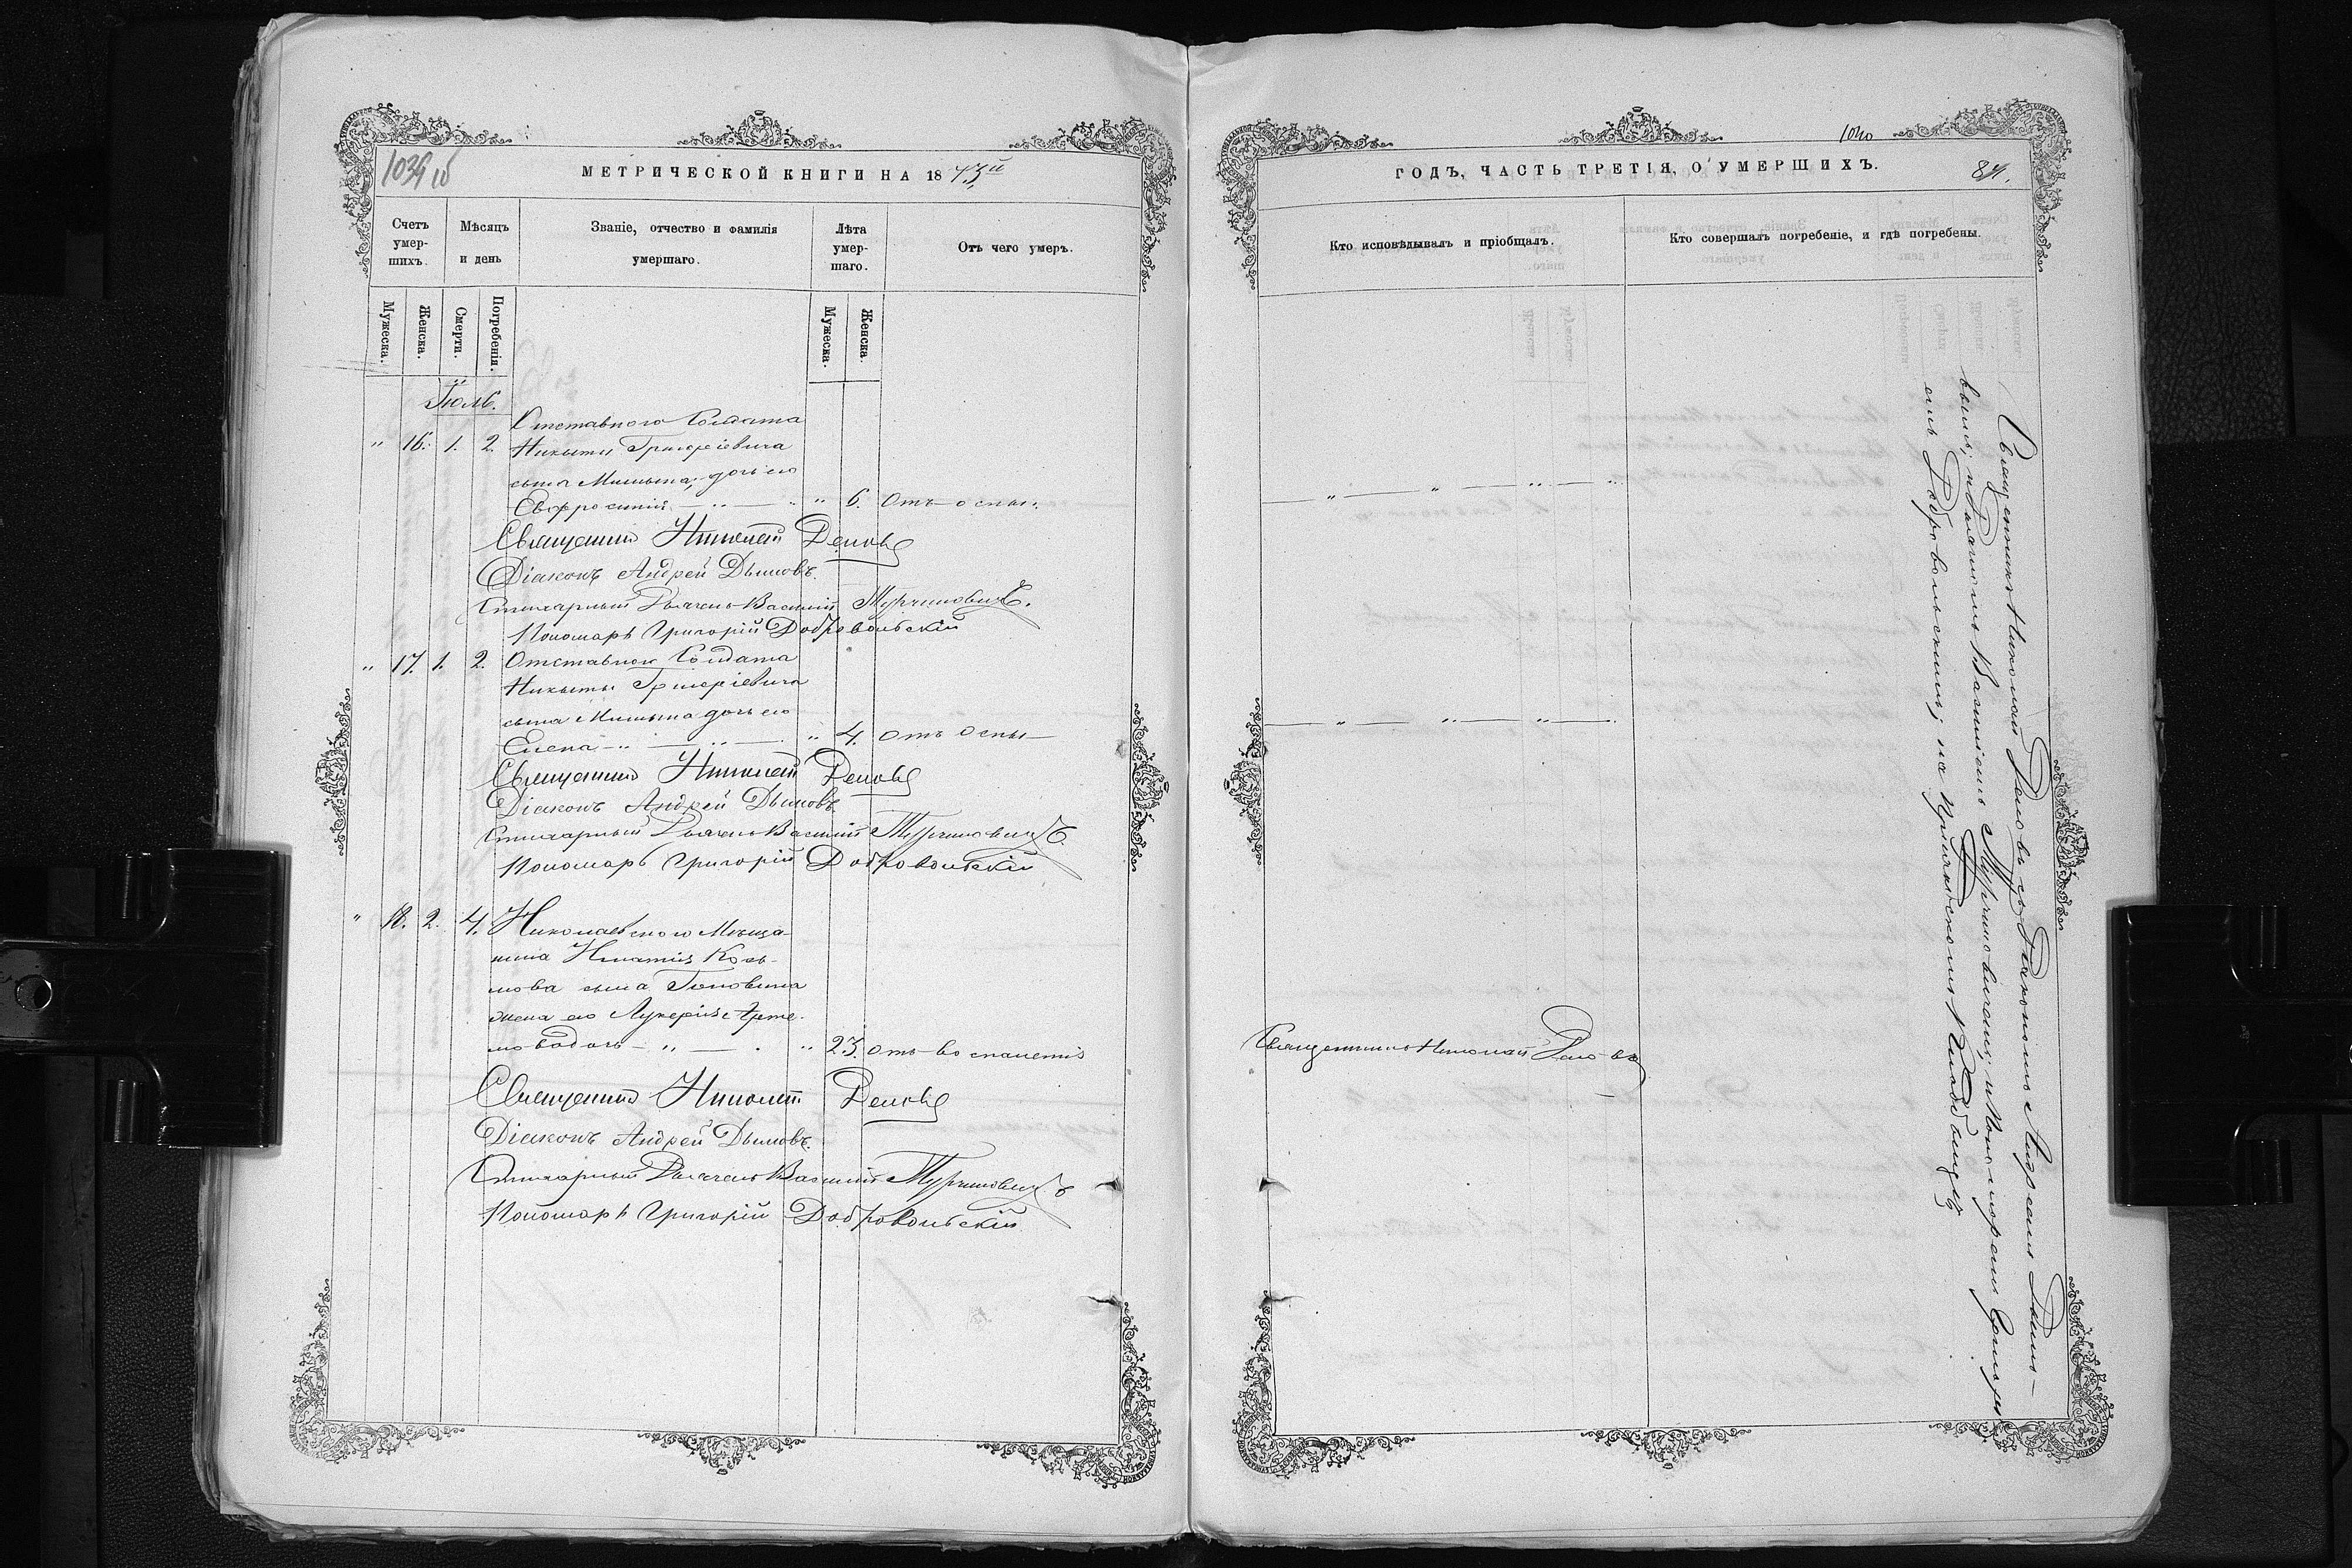 1039 об
МЕТРИЧЕСКОЙ КНИГИ НА 1873й
Счетъ умер-шихъ.
Мѣсяцъ и день
Званіе, отчество и фамилія умершаго.
Лѣта умер-шаго.
Отъ чего умеръ.
Мужеска.
Женска.
Смерти.
Погребенія.
Мужеска.
Женска.
Іюль.
Отставного Солдата
" 16. 1. 2. Никиты Григоріевича
сына дочь его
Евфросинія " 6. Отъ оспы.
Священникъ Николай
Діаконъ Андрей Дымовъ.
Стихарный Дьячекъ Василій
Пономарь Григорій Добровольскій
" 17. 1. 2. Отставного Солдата
Никиты Григоріевича
сына дочь его
Елена " 4. Отъ Оспы
Священникъ Николай
Діаконъ Андрей Дымовъ
Стихарный Дьячекъ Василій
Пономарь Григорій Добровольскій
" 18. 2. 4. Николаевского Мѣща-
нина Игнатія Козь-
мова сына Головина
жена его Лукерія Арте-
мова дочь " " 23. отъ воспаленія
Священникъ Николай
Діаконъ Андрей Дымовъ.
Стихарный Дьячекъ Василій
Пономарь Григорій Добровольскій
1040
ГОДЪ, ЧАСТЬ ТРЕТІЯ, О УМЕРШИХЪ.
84.
Кто исповѣдывалъ и пріобщалъ.
Кто совершалъ погребеніе, и гдѣ погребены.
Священникъ Николай
Священникъ Николай съ Діакономъ Андреемъ Дымо-
вымъ, Василіемъ и Пономаремъ Григорі-
емъ Добровольскимъ, на приходскомъ Кладбищѣ